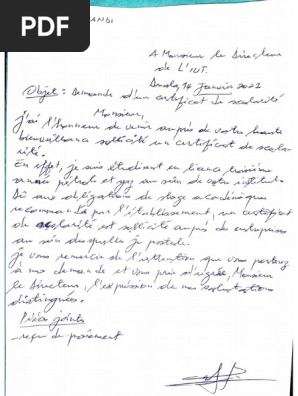 PDF
ANDI
A Monsieur le Directeur
de L'IUT.
Douala, 14 Janvier 2021
Objet : Demande d'un certificat de scolarité
Monsieur,
j'ai l'honneur de venir auprès de votre haute
bienveillance sollicité un certificat de scola-
rité.
En effet, je suis étudiant en licence
pétrole et gaz au sein de votre institut.
aux obligations de stage académique
recommandé par l'établissement, un certificat
de scolarité est sollicité auprès de entreprises
au sein desquelles je postule.
je vous remercie de l'attention que vous porterez
a ma demande et vous prie d'agréer, Monsieur
le Directeur, l'expression de mes salutations
distinguées.
Pièces jointe
- reçu de paiement